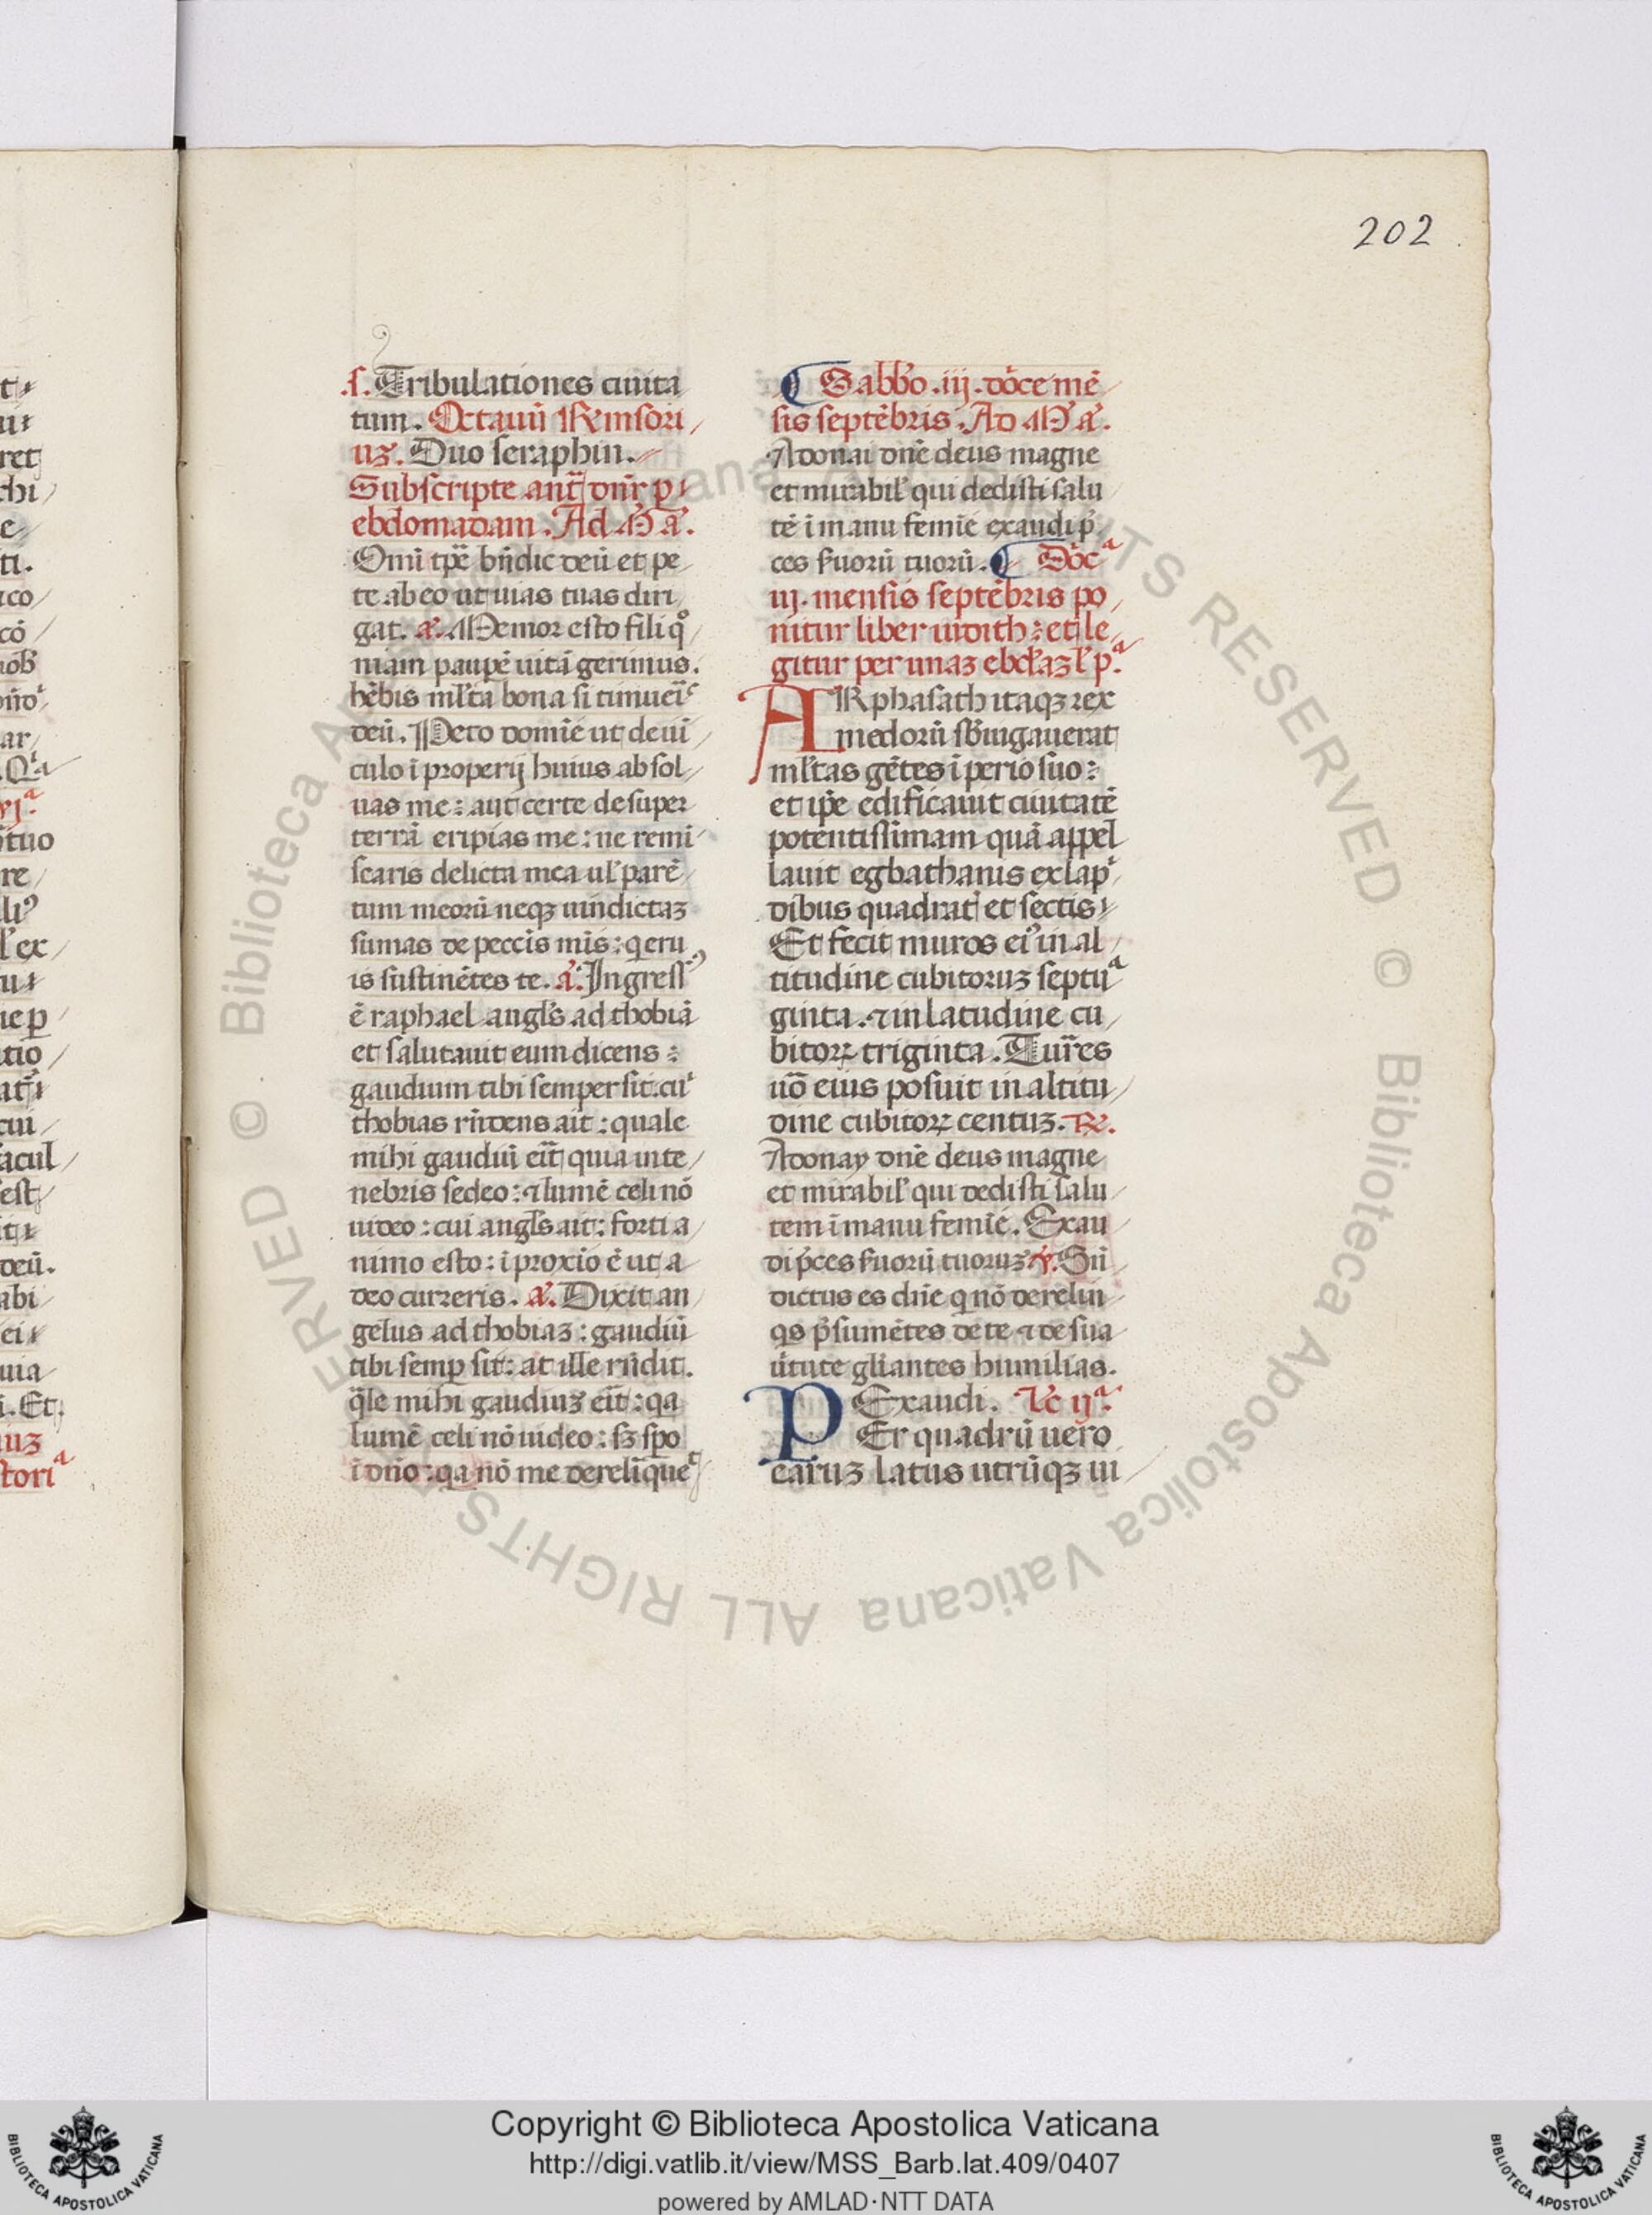 202
.s. Tribulationes ciuita
tum. Octauū Rẏnsori
uȝ. Duo seraphin.
Subscripte ant̄ dn̄r p
ebdomadam. Ad Mᵃ.
Omī tp̄e bn̄dic deū et pe
te ab eo ut uias tuas diri
gat. a͛. Memor esto fili qᵒ
niam paupē uitā gerimus.
hēbis ml̄ta bona si timueī͛
deū. Peto domīe ut de uī
culo īproperij huius absol
uas me: aut certe desuper
terrā eripias me: ne remi
scaris delicta mea ul̛ parē
tum meorū neqȝ uindictaȝ
sumas de pecc̄is mīs: q̄ eru
is sustinētes te. a͛. Ingress᾿
ē raphael angl̄s ad thobiā
et salutauit eum dicens:
gaudium tibi semper sit. cuⁱ
thobias rn̄dens ait: quale
mihi gaudiū eīt quia in te
nebris sedeo: ⁊ lumē celi nō
uideo: cui angl̄s ait: forti a
nimo esto: ī proxīo ē ut a
deo curzeris. a͛. Dixit an
gelus ad thobiaȝ: gaudiū
tibi semp̱ sit: at ille rn̄dit.
q̄le mihi gaudiuȝ eīt: qa
lumē celi nō uideo: sȝ sp̄o
ī dn̄o: qa nō me derelīque͛
¶ Sabb̄o .iij. dōce mē
sis septēbris. Ad Mᵃ.
Adonai dn̄e deus magne
et mirabil̛ qui dedisti salu
tē ī manu femīe exaudi p̄
ces s̛uorū tuorū. ¶ Dōcᵃ
iij. mensis septēbris po
nitur liber iudith: et le
gitur per unaȝ ebd̛aȝ l̛ p.ᵃ
ARphasath itaqȝ rex
medorū sb̄iugauerat
ml̄tas gētes īperio suo:
et ip̄e edificauit ciuitatē
potentissimam quā appel
lauit egbathanis ex lapⁱ
dibus quadratⁱ et sectis
Et fecit muros ei᾿ in al
titudine cubitoruȝ septuᵃ
ginta. ⁊ in latudine cu
bitoꝝ triginta. Tur̄es
uō eius posuit in altitu
dine cubitoꝝ centuȝ. R̷.
Adonay dn̄e deus magne
et mirabil̛ qui dedisti salu
tem ī manu femīe. Exau
di p̄ces s̛uorū tuoruȝ. ℣. Bn̄
dictus es dn̄e q̄ nō derelin
q̄s p̄sumētes de te ⁊ de sua
ư̄tute gl̄iantes humilias.
Exaudi. Lc̄ ijᵃ.
PEr quadrū uero
earuȝ latus utrūqȝ ui
Copyright © Biblioteca Apostolica Vaticana
http://digi.vatlib.it/view/MSS_Barb.lat.409/0407
powered by AMLAD·NTT DATA
BIBLIOTECA APOSTOLICA VATICANA
BIBLIOTECA APOSTOLICA VATICANA
© Biblioteca Apostolica Vaticana ALL RIGHTS RESERVED
© Biblioteca Apostolica Vaticana ALL RIGHTS RESERVED